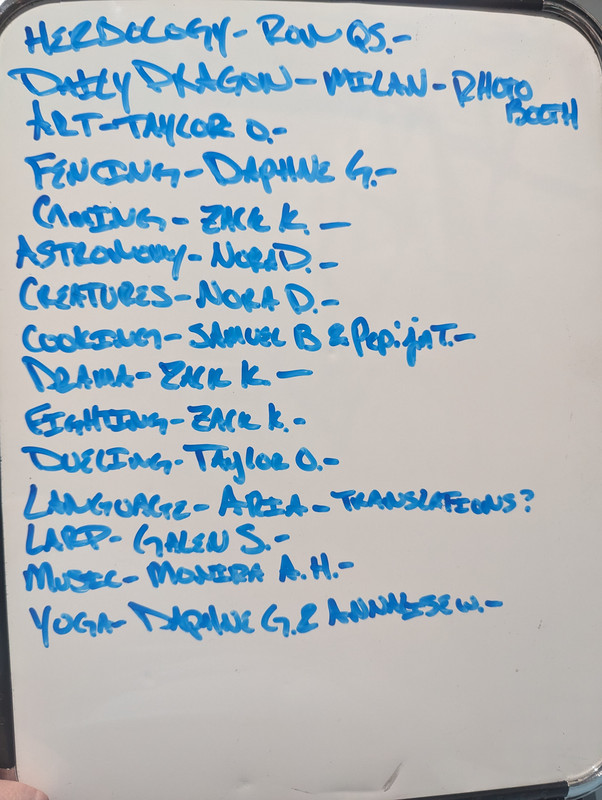 HERBOLOGY - RON QS. -
DAILY DRAGON - MILAN - PHOTO BOOTH
ART - TAYLOR O. -
FENCING - DAPHNE G. -
GAMING - ZACK K. -
ASTRONOMY - NORA D. -
CREATURES - NORA D. -
COOKING - SAMUEL B & Pepijn T. -
DRAMA - ZACK K. -
FIGHTING - ZACK K. -
DUELING - TAYLOR O. -
LANGUAGE - ARIA - TRANSLATIONS?
LARP - GALEN S. -
MUSIC - MONIRA A.H. -
YOGA - DAPHNE G. & ANNALISE W. -